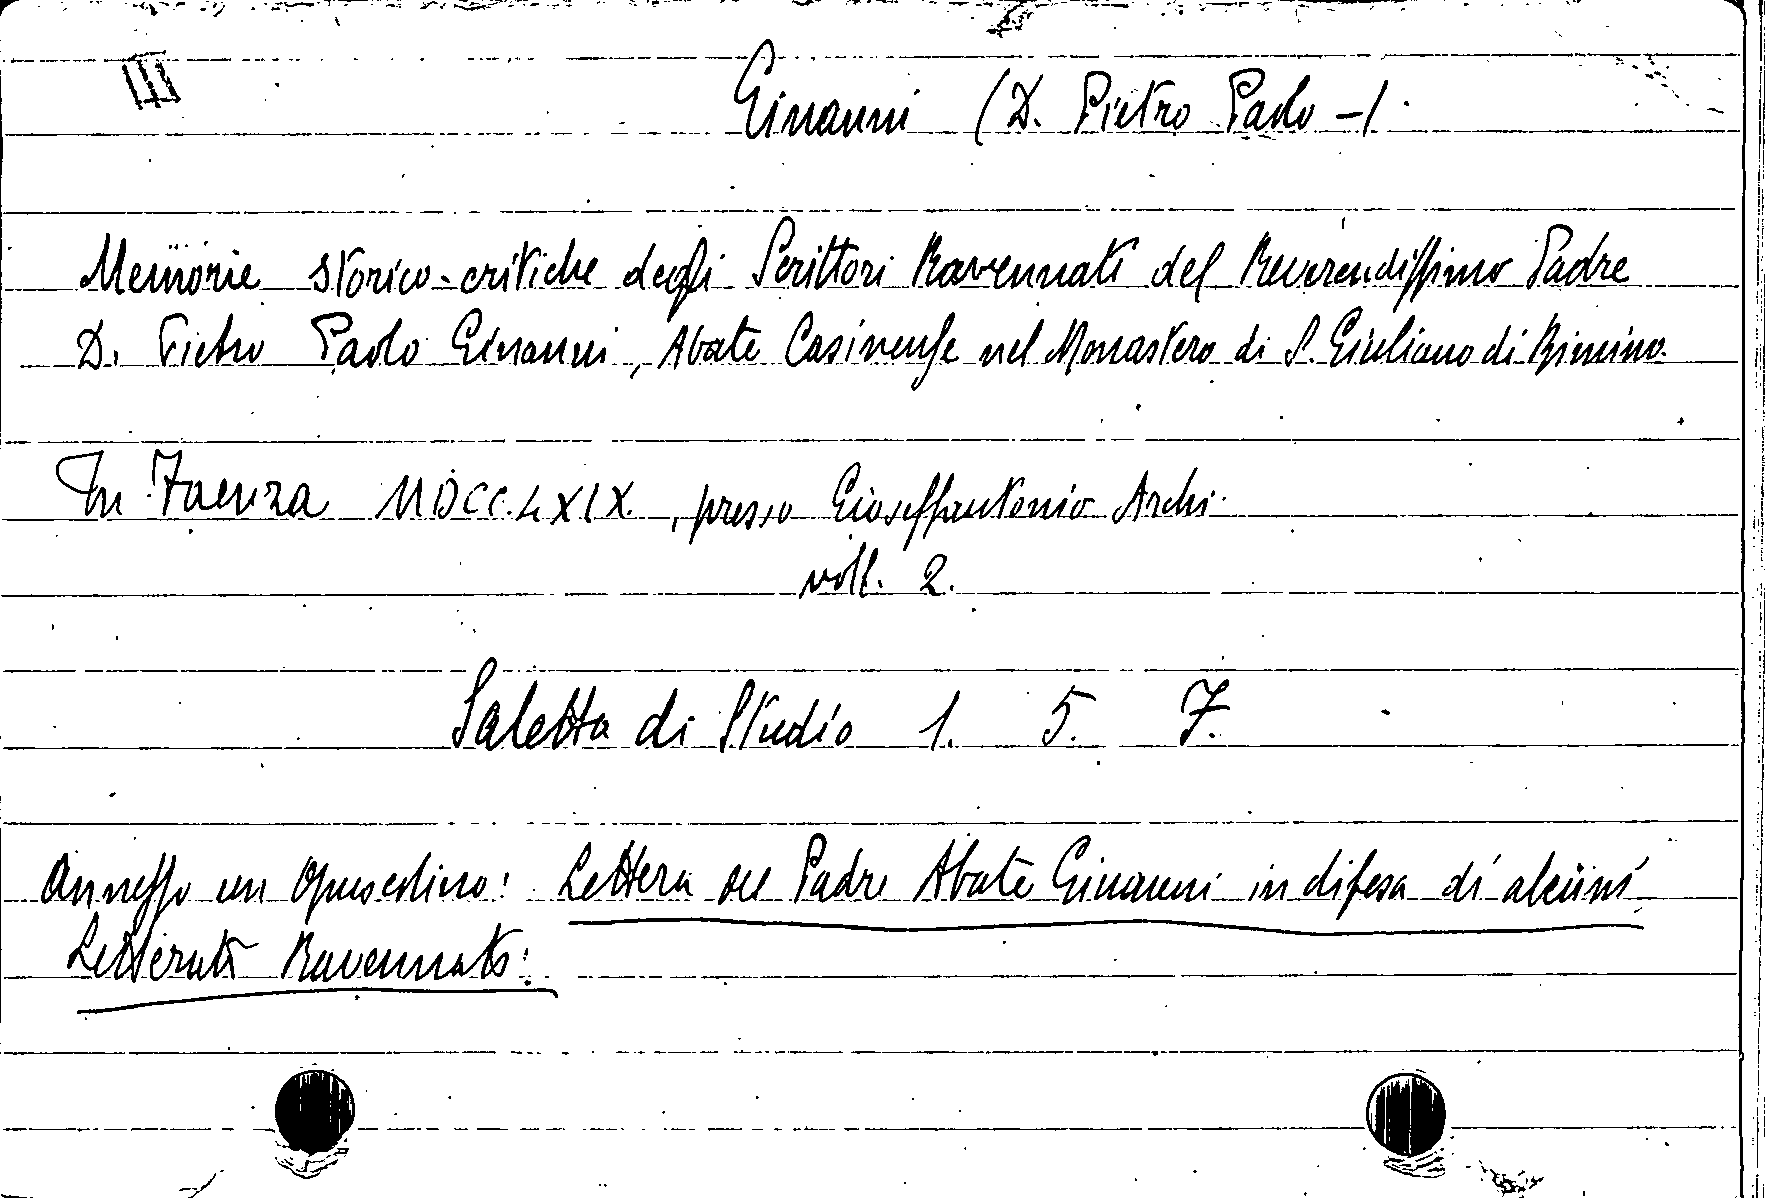 Ginanni (D. Pietro Paolo -).
Memorie storico-critiche degli Scrittori Ravennati del Reverendissimo Padre
D. Pietro Paolo Ginanni, Abate Casinense nel Monastero di S. Giuliano di Rimino.
In Faenza MDCC.LXIX., presso Gioseffantonio Archi.
voll. 2.
Saletta di Studio 1. 5. 7.
Annesso un opuscolino: Lettera del Padre Abate Ginanni in difesa di alcuni
Letterati Ravennati: